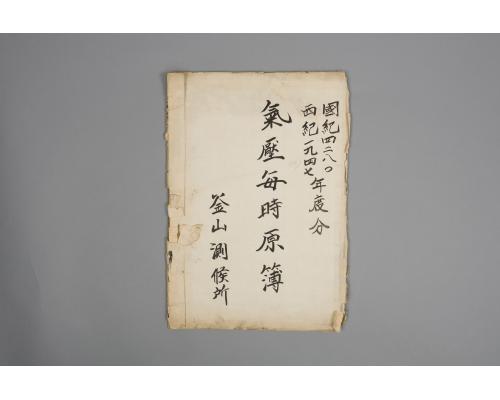 國紀四二八〇
西紀一九四七
年度分
氣壓每時原簿
釜山測候所